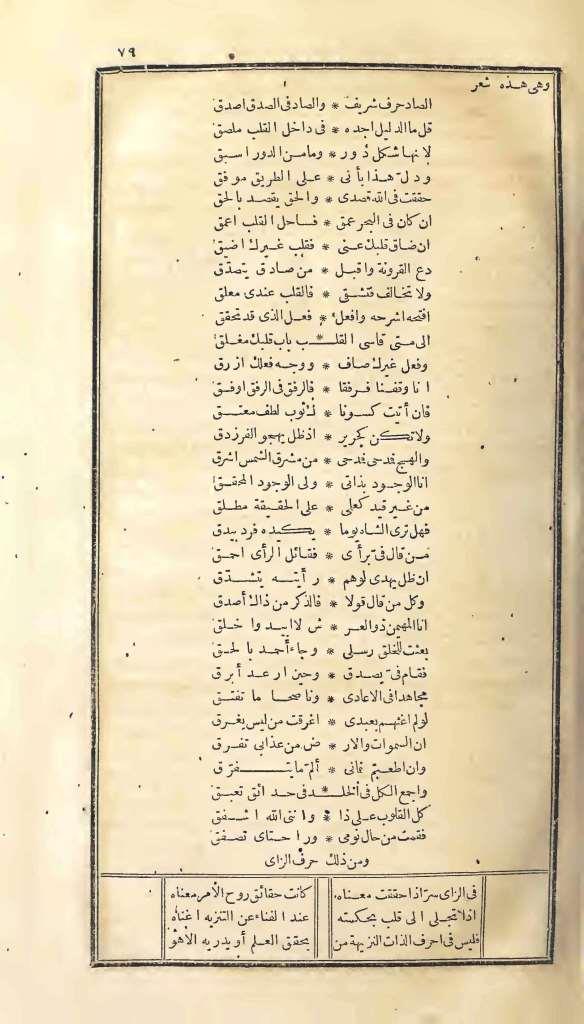 ٧٩
وهى هذه شعر
الصاد حرف شريف * والصاد فى الصدق اصدق
قل ما الدليل اجده * فى داخل القلب ملصق
لانها شكل دور * وما من الدور اسبق
ودل هذا بأنى * على الطريق موفق
حققت فى الله قصدى * والحق يقصد بالحق
ان كان فى البحر عمق * فساحل القلب اعمق
ان ضاق قلبك عنى * فقلب غيرك اضيق
دع القرونة واقبل * من صادق يتصدق
ولا تخالف فتشق * فالقلب عندى معلق
افتحه اشرحه وافعل * فعل الذى قد تحقق
الى متى قاسى القلب * باب قلبك مغلق
وفعل غيرك صاف * ووجه فعلك ازرق
انا وقفنا فرفقا * فالرفق فى الرفق اوفق
فان أتيت كسونا * ك ثوب لطف معتق
ولا تكن كجرير * اذ ظل يهجو الفرزدق
والهج بمدحى فمدحى * من مشرق الشمس اشرق
انا الوجود بذاتى * ولى الوجود المحقق
من غير قيد كعلمى * على الحقيقة مطلق
فهل ترى الشاه يوما * يكيده فرد بيدق
من قال فى برأى * فقائل الرأى احمق
ان ظل يهدى لوهم * رأيته يتشدق
وكل من قال قولا * فالذكر من ذاك أصدق
انا المهيمن ذو العر * ش لا ابيد واخلق
بعثت للخلق رسلى * وجاء أحمد بالحق
فقام فى بصدق * وحين ارعد أبرق
مجاهدا فى الاعادى * وناصحا ما تفتق
لو لم اغثهم بعبدى * اغرقت من ليس يغرق
ان السموات والار * ض من عذابى تفرق
وان اطعتم فانى * ألم ما يتفرق
واجمع الكل فى الخلد * فى حدائق تعبق
كل القلوب على ذا * واننى الله اشفق
فقمت من حال نومى * وراحتاى تصفق
ومن ذلك حرف الزاى
فى الزاى سر اذا حققت معناه * كانت حقائق روح الأمر معناه
اذا تجلى الى قلب بحكمته * عند الفناء عن التنزيه اغناه
فليس فى احرف الذات النزيهة من * يحقق العلم أو يدريه الاهو